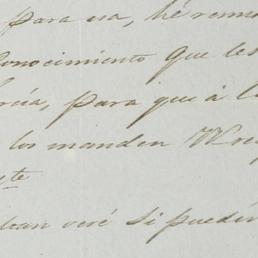 para esa, hé remi
conocimiento que les
cia, para que á l
los manden Vues
te
ean veré si pueden